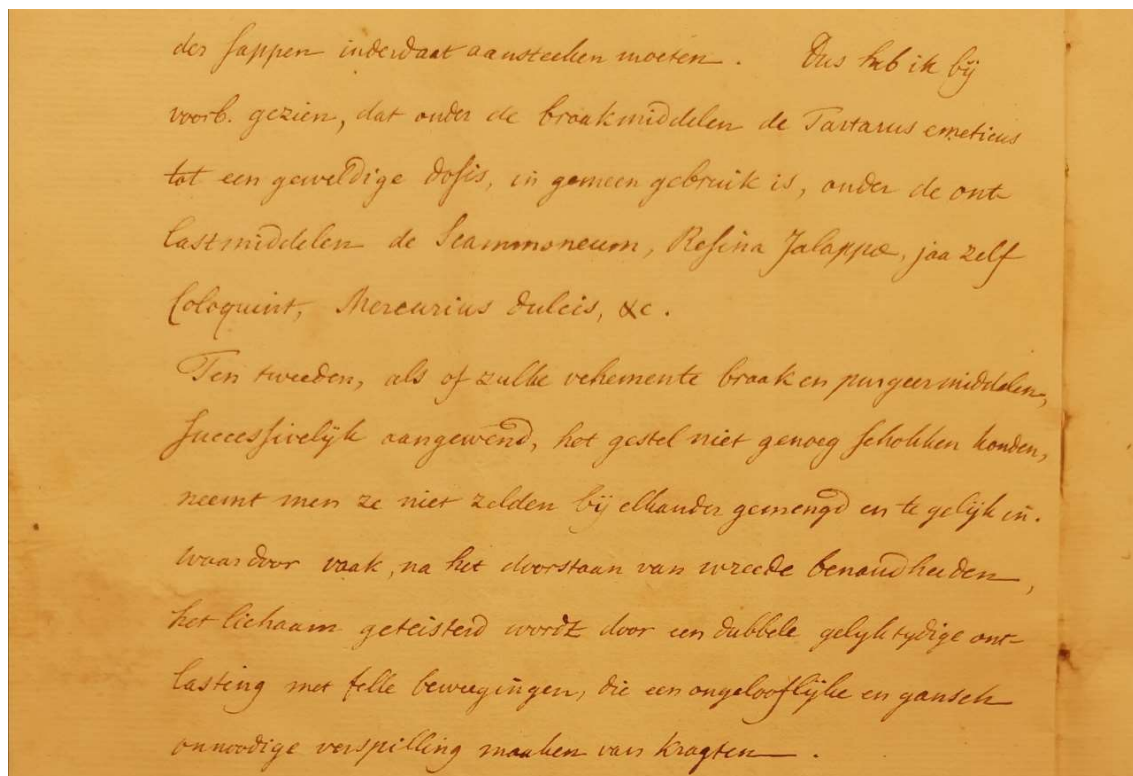 der sappen inderdaat aansteeken moeten. Dus heb ik bij
voorb. gezien, dat onder de braakmiddelen de Tartarus emeticus
tot een geweldige dosis, in gemeen gebruik is, onder de ont-
lastmiddelen de Scammoneum, Resina Jalappæ, jaa zelf
Coloquint, Mercurius dulcis, &c.
Ten tweeden, als of zulke vehemente braak en purgeermiddelen,
successivelijk aangewend, het gestel niet genoeg schokken konden,
neemt men ze niet zelden bij elkander gemengd en te gelijk in.
waardoor vaak, na het doorstaan van wreede benaudheeden,
het lichaam geteisterd wordt door een dubbele gelyktydige ont-
lasting met felle beweegingen, die een ongelooflijke en gansch
onnoodige verspilling maaken van kragten.